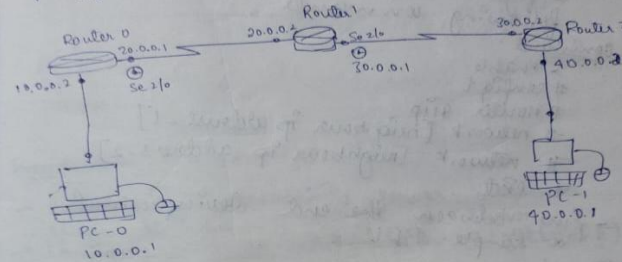 Router 0
20.0.0.1
Se 2/0
10.0.0.2
20.0.0.2
Router 1
Se 2/0
30.0.0.1
30.0.0.2
Router
40.0.0.2
PC-0
10.0.0.1
PC-1
40.0.0.1